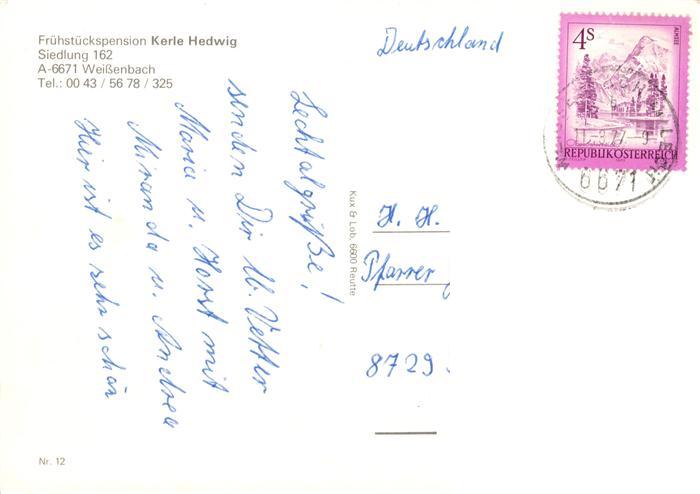 Frühstückspension Kerle Hedwig
Siedlung 162
A-6671 Weißenbach
Tel.: 00 43 / 56 78 / 325
Lechtalgrüße!
senden Dir lb. Vetter
Maria u. Horst mit
Miranda u. Andrea
Hier ist es sehr schön
Nr. 12
Kux & Lob, 6600 Reutte
Deutschland
H. H.
Pfarrer
8729
4S
ALMSEE
REPUBLIK ÖSTERREICH
6671